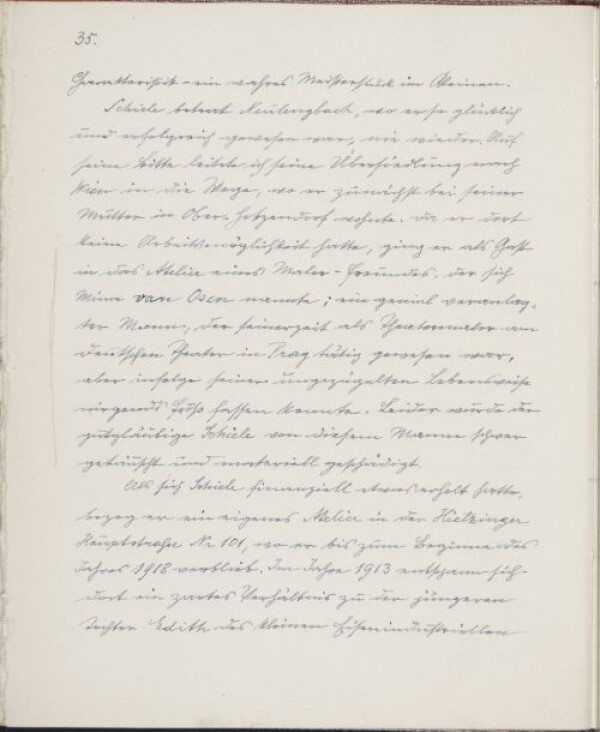 35.
Charakteristik - ein wahres Meisterstück im Kleinen.
Schiele betrat Neulengbach, wo er so glücklich
und erfolgreich gewesen war, nie wieder. Auf
seine Bitte leitete ich seine Übersiedlung nach
Wien in die Wege, wo er zunächst bei seiner
Mutter in Ober-Hetzendorf wohnte. Da er dort
keine Arbeitsmöglichkeit hatte, ging er als Gast
in das Atelier eines Maler-Freundes, der sich
Mime van Osen nannte; ein genial veranlag-
ter Mann, der seinerzeit als Theatermaler am
deutschen Theater in Prag tätig gewesen war,
aber infolge seiner ungezügelten Lebensweise
nirgends Fuß fassen konnte. Leider wurde der
gutgläubige Schiele von diesem Manne schwer
getäuscht und materiell geschädigt.
Als sich Schiele finanziell etwas erholt hatte,
bezog er ein eigenes Atelier in der Hietzinger
Hauptstraße Nr 101, wo er bis zum Beginne des
Jahres 1918 verblieb. Im Jahre 1913 entspann sich
dort ein zartes Verhältnis zu der jüngeren
Tochter Edith des kleinen Eisenindustriellen